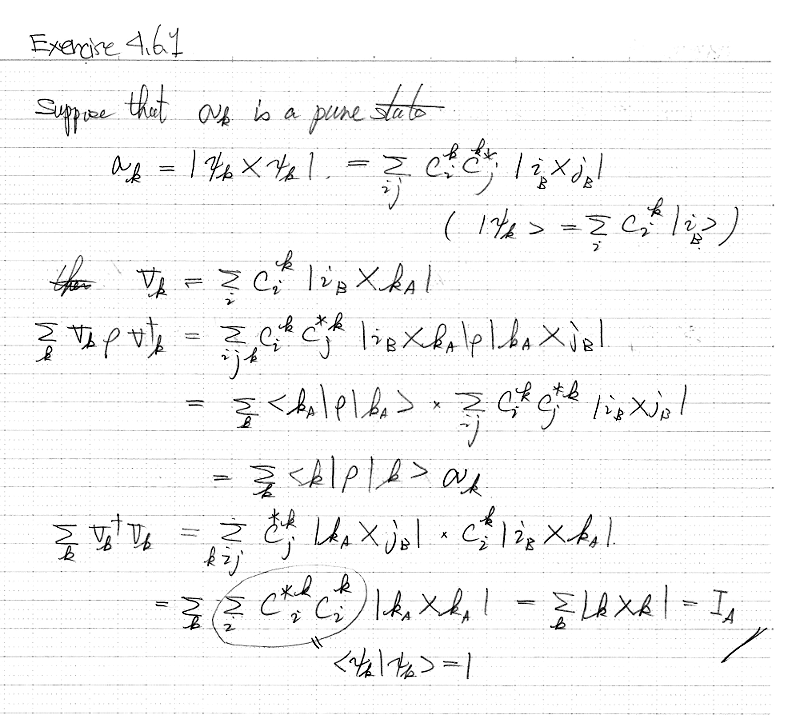 Exercise 4.6.1
Suppose that σ_k is a pure state
σ_k = |ψ_k><ψ_k|. = Σ_{ij} C_i^k C_j^{k*} |i_B><j_B|
( |ψ_k> = Σ_i C_i^k |i_B> )
then V_k = Σ_i C_i^k |i_B><k_A|
Σ_k V_k ρ V_k^† = Σ_{ijk} C_i^k C_j^{*k} |i_B><k_A|ρ|k_A><j_B|
= Σ_k <k_A|ρ|k_A> × Σ_{ij} C_i^k C_j^{*k} |i_B><j_B|
= Σ_k <k|ρ|k> σ_k
Σ_k V_k^† V_k = Σ_{kij} C_j^{*k} |k_A><j_B| × C_i^k |i_B><k_A|.
= Σ_k Σ_i C_i^{*k} C_i^k |k_A><k_A| = Σ_k |k><k| = I_A
=
<ψ_k|ψ_k> = 1